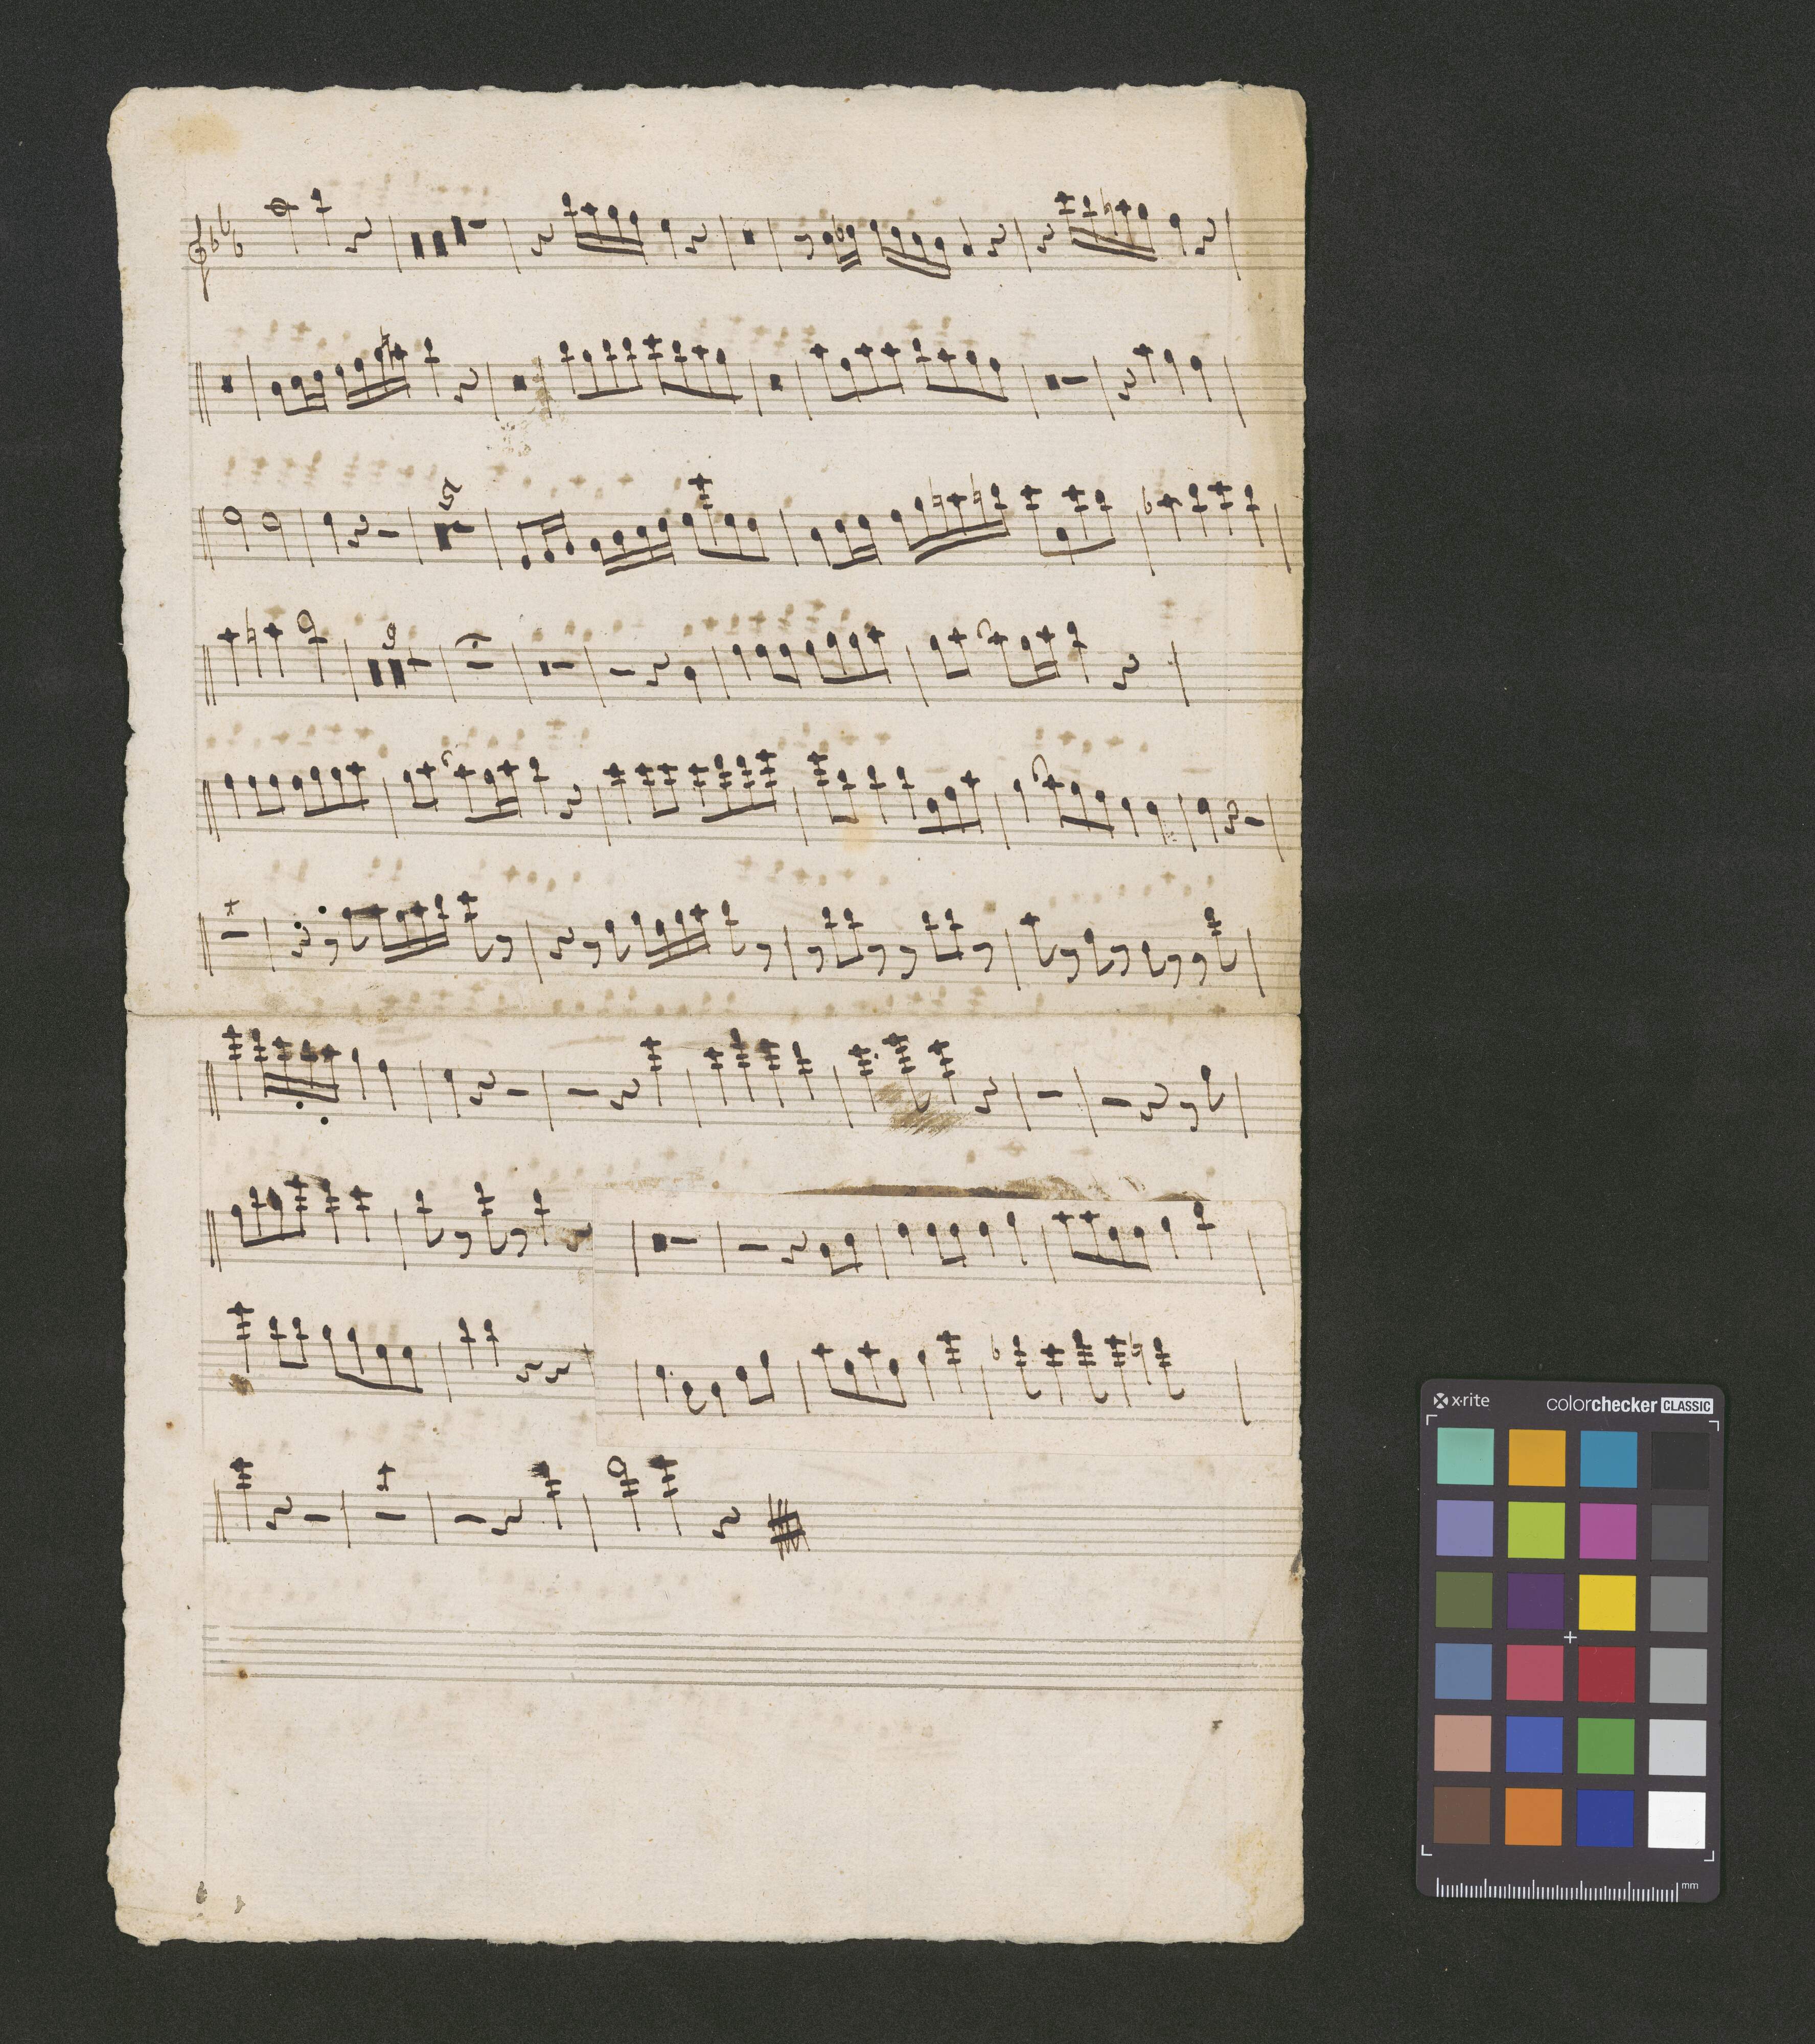 5
9
x·rite colorchecker CLASSIC
mm